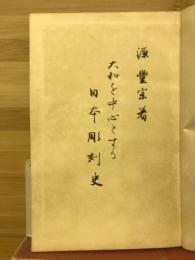 源豊宗著
大和を中心とする
日本彫刻史